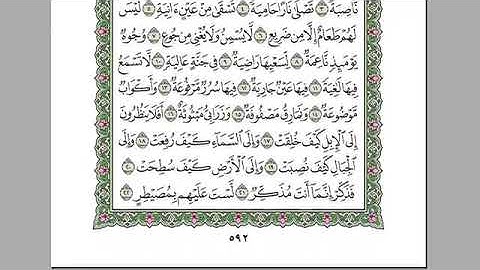 نَّاصِبَةٌ ٣ تَصْلَىٰ نَارًا حَامِيَةً ٤ تُسْقَىٰ مِنْ عَيْنٍ ءَانِيَةٍ ٥ لَّيْسَ
لَهُمْ طَعَامٌ إِلَّا مِن ضَرِيعٍ ٦ لَّا يُسْمِنُ وَلَا يُغْنِى مِن جُوعٍ ٧ وُجُوهٌ
يَوْمَئِذٍ نَّاعِمَةٌ ٨ لِّسَعْيِهَا رَاضِيَةٌ ٩ فِى جَنَّةٍ عَالِيَةٍ ١٠ لَّا تَسْمَعُ
فِيهَا لَٰغِيَةً ١١ فِيهَا عَيْنٌ جَارِيَةٌ ١٢ فِيهَا سُرُرٌ مَّرْفُوعَةٌ ١٣ وَأَكْوَابٌ
مَّوْضُوعَةٌ ١٤ وَنَمَارِقُ مَصْفُوفَةٌ ١٥ وَزَرَابِىُّ مَبْثُوثَةٌ ١٦ أَفَلَا يَنظُرُونَ
إِلَى ٱلْإِبِلِ كَيْفَ خُلِقَتْ ١٧ وَإِلَى ٱلسَّمَآءِ كَيْفَ رُفِعَتْ ١٨ وَإِلَى
ٱلْجِبَالِ كَيْفَ نُصِبَتْ ١٩ وَإِلَى ٱلْأَرْضِ كَيْفَ سُطِحَتْ ٢٠
فَذَكِّرْ إِنَّمَآ أَنتَ مُذَكِّرٌ ٢١ لَّسْتَ عَلَيْهِم بِمُصَيْطِرٍ ٢٢
٥٩٢